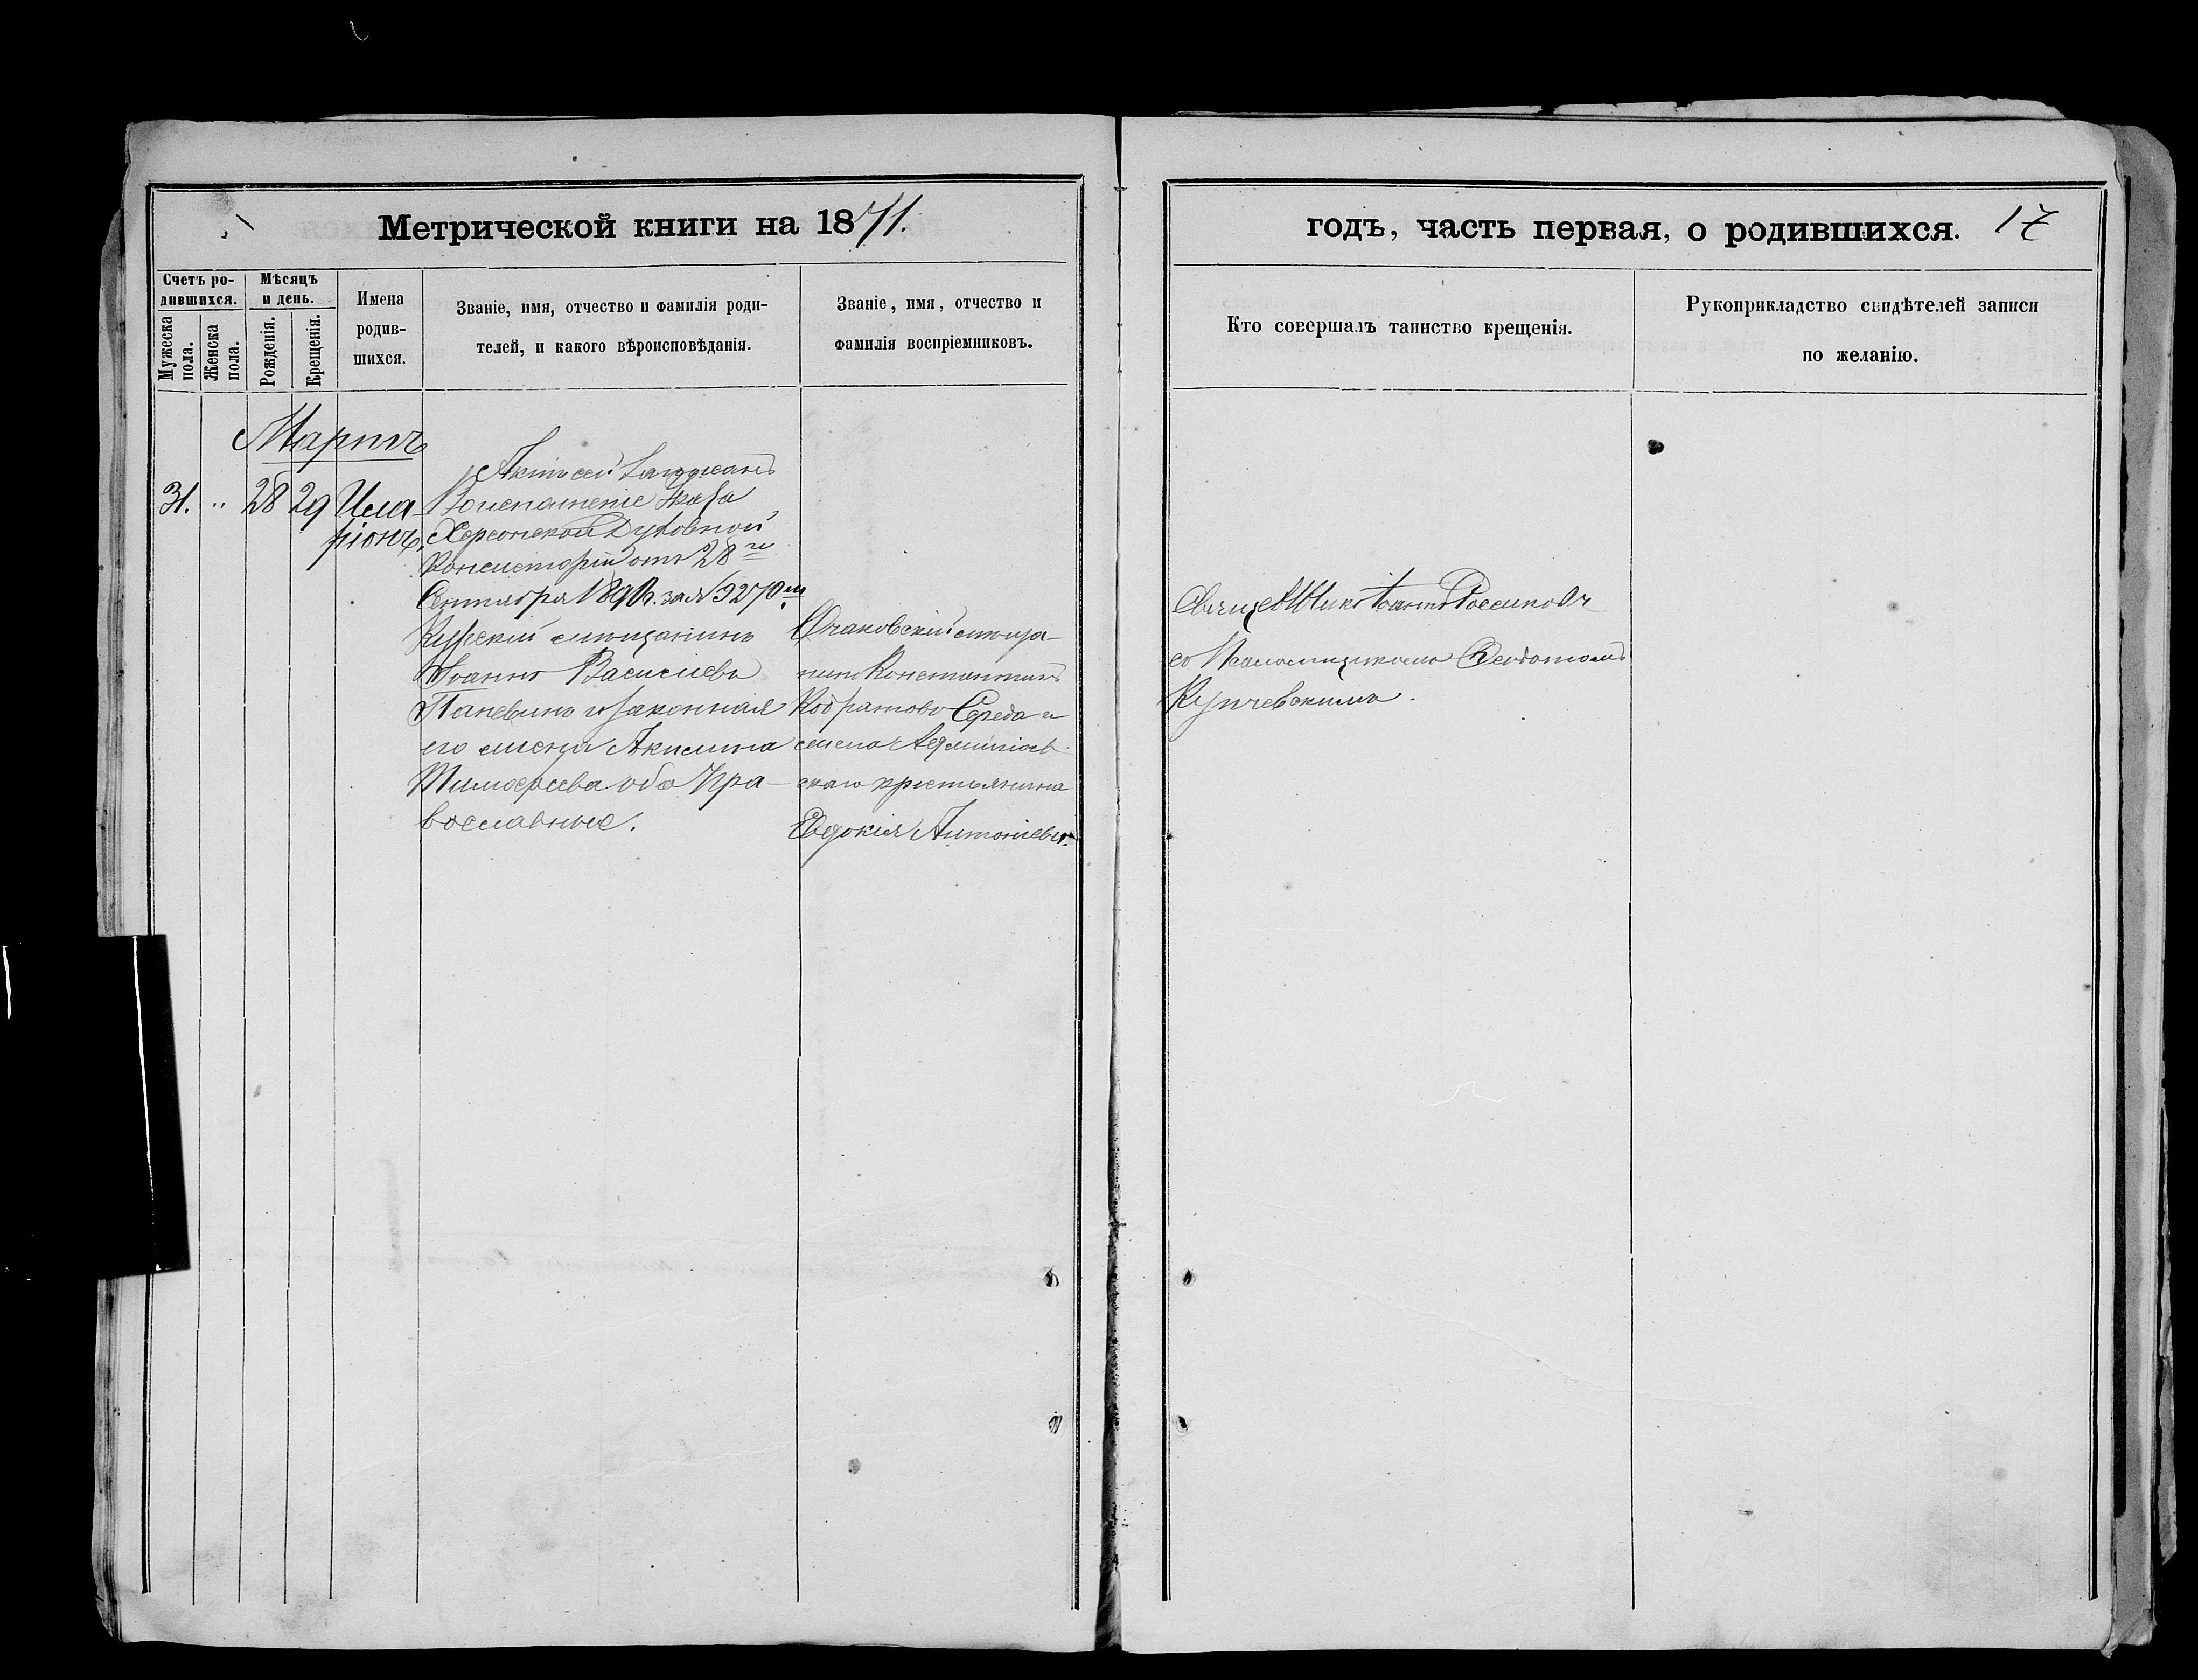 Метрической книги на 1871.
годъ, часть первая, о родившихся. 17
Счетъ ро-
дившихся.
Мужеска
пола.
Женска
пола.
Мѣсяцъ
и день.
Рожденія.
Крещенія.
Имена
родив-
шихся.
Званіе, имя, отчество и фамилія роди-
телей, и какого вѣроисповѣданія.
Званіе, имя, отчество и
фамилія воспріемниковъ.
Кто совершалъ таинство крещенія.
Рукоприкладство свидѣтелей записи
по желанію.
Мартъ
31. " 28 29 Ила
ріонъ,
Воисполненіе Указа
Херсонской Духовной
Консисторіи отъ 28 го
Сентября за № 9270
мѣщанинъ
Іоаннъ Васильевъ
Паневинъ и законная
его жена Акилина
Тимофеева оба Пра-
вославные.
Очаковскій мѣща-
нинъ Константинъ
Середа и
села
скаго крестьянина
Евдокія Антоніева.
Іоаннъ
съ Псаломщикомъ